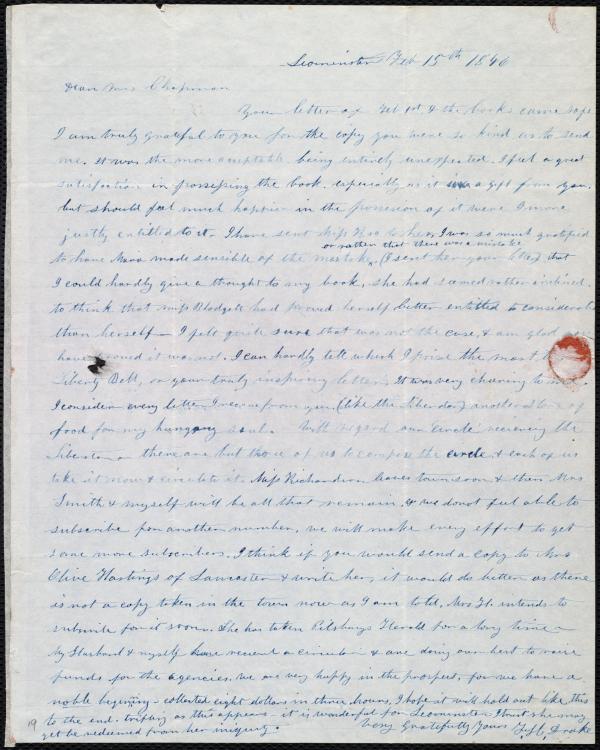 Leominster Feb 15th 1846
Dear Mrs Chapman
Your letter of Feb 1st & the books came safe
I am truly grateful to you for the copy you were so kind as to send
me. It was the more acceptable being entirely unexpected. I feel a great
satisfaction in possessing the book, especially as it is a gift from you,
but should feel much happier in the possession of it were I more
justly entitled to it. I have sent Miss to her, I was so much gratified
or rather that there was a mistake
to have made sensible of the mistake, (I sent her your letter) that
I could hardly give a thought to my book, she had seemed rather inclined
to think that Miss Blodgett had proved herself better entitled to consideration
than herself — I felt quite sure that was not the case, & am glad you
have proved it was not. I can hardly tell which I prize the most the
Liberty Bell, or your truly inspiring letter. It was very cheering to me.
I consider every letter I receive from you (like the Liberator) another of
food for my hungry soul. With regard our circle receiving the
Liberator there are but three of us to compose the circle & each of us
take it now & circulate it. Miss Richardson leaves town soon & then Mrs
Smith & myself will be all that remain, & we do not feel able to
subscribe for another number, we will make every effort to get
some more subscribers. I think if you would send a copy to Mrs
Olive Hastings of Lancaster & write her, it would do better as there
is not a copy taken in the town now as I am told. Mrs H. intends to
subscribe for it soon. She has taken Pilsburys Herald for a long time —
My Husband & myself have received a circular & are doing our best to raise
funds for the agencies. we are very happy in the prospect, for we have a
noble beginning — collected eight dollars in three hours, I hope it will hold out like this
to the end. trifling as this appears — it is wonderful for Leominster I trust she may
yet be redeemed from her iniquity. Very Gratefully Yours F. H. Drake
19